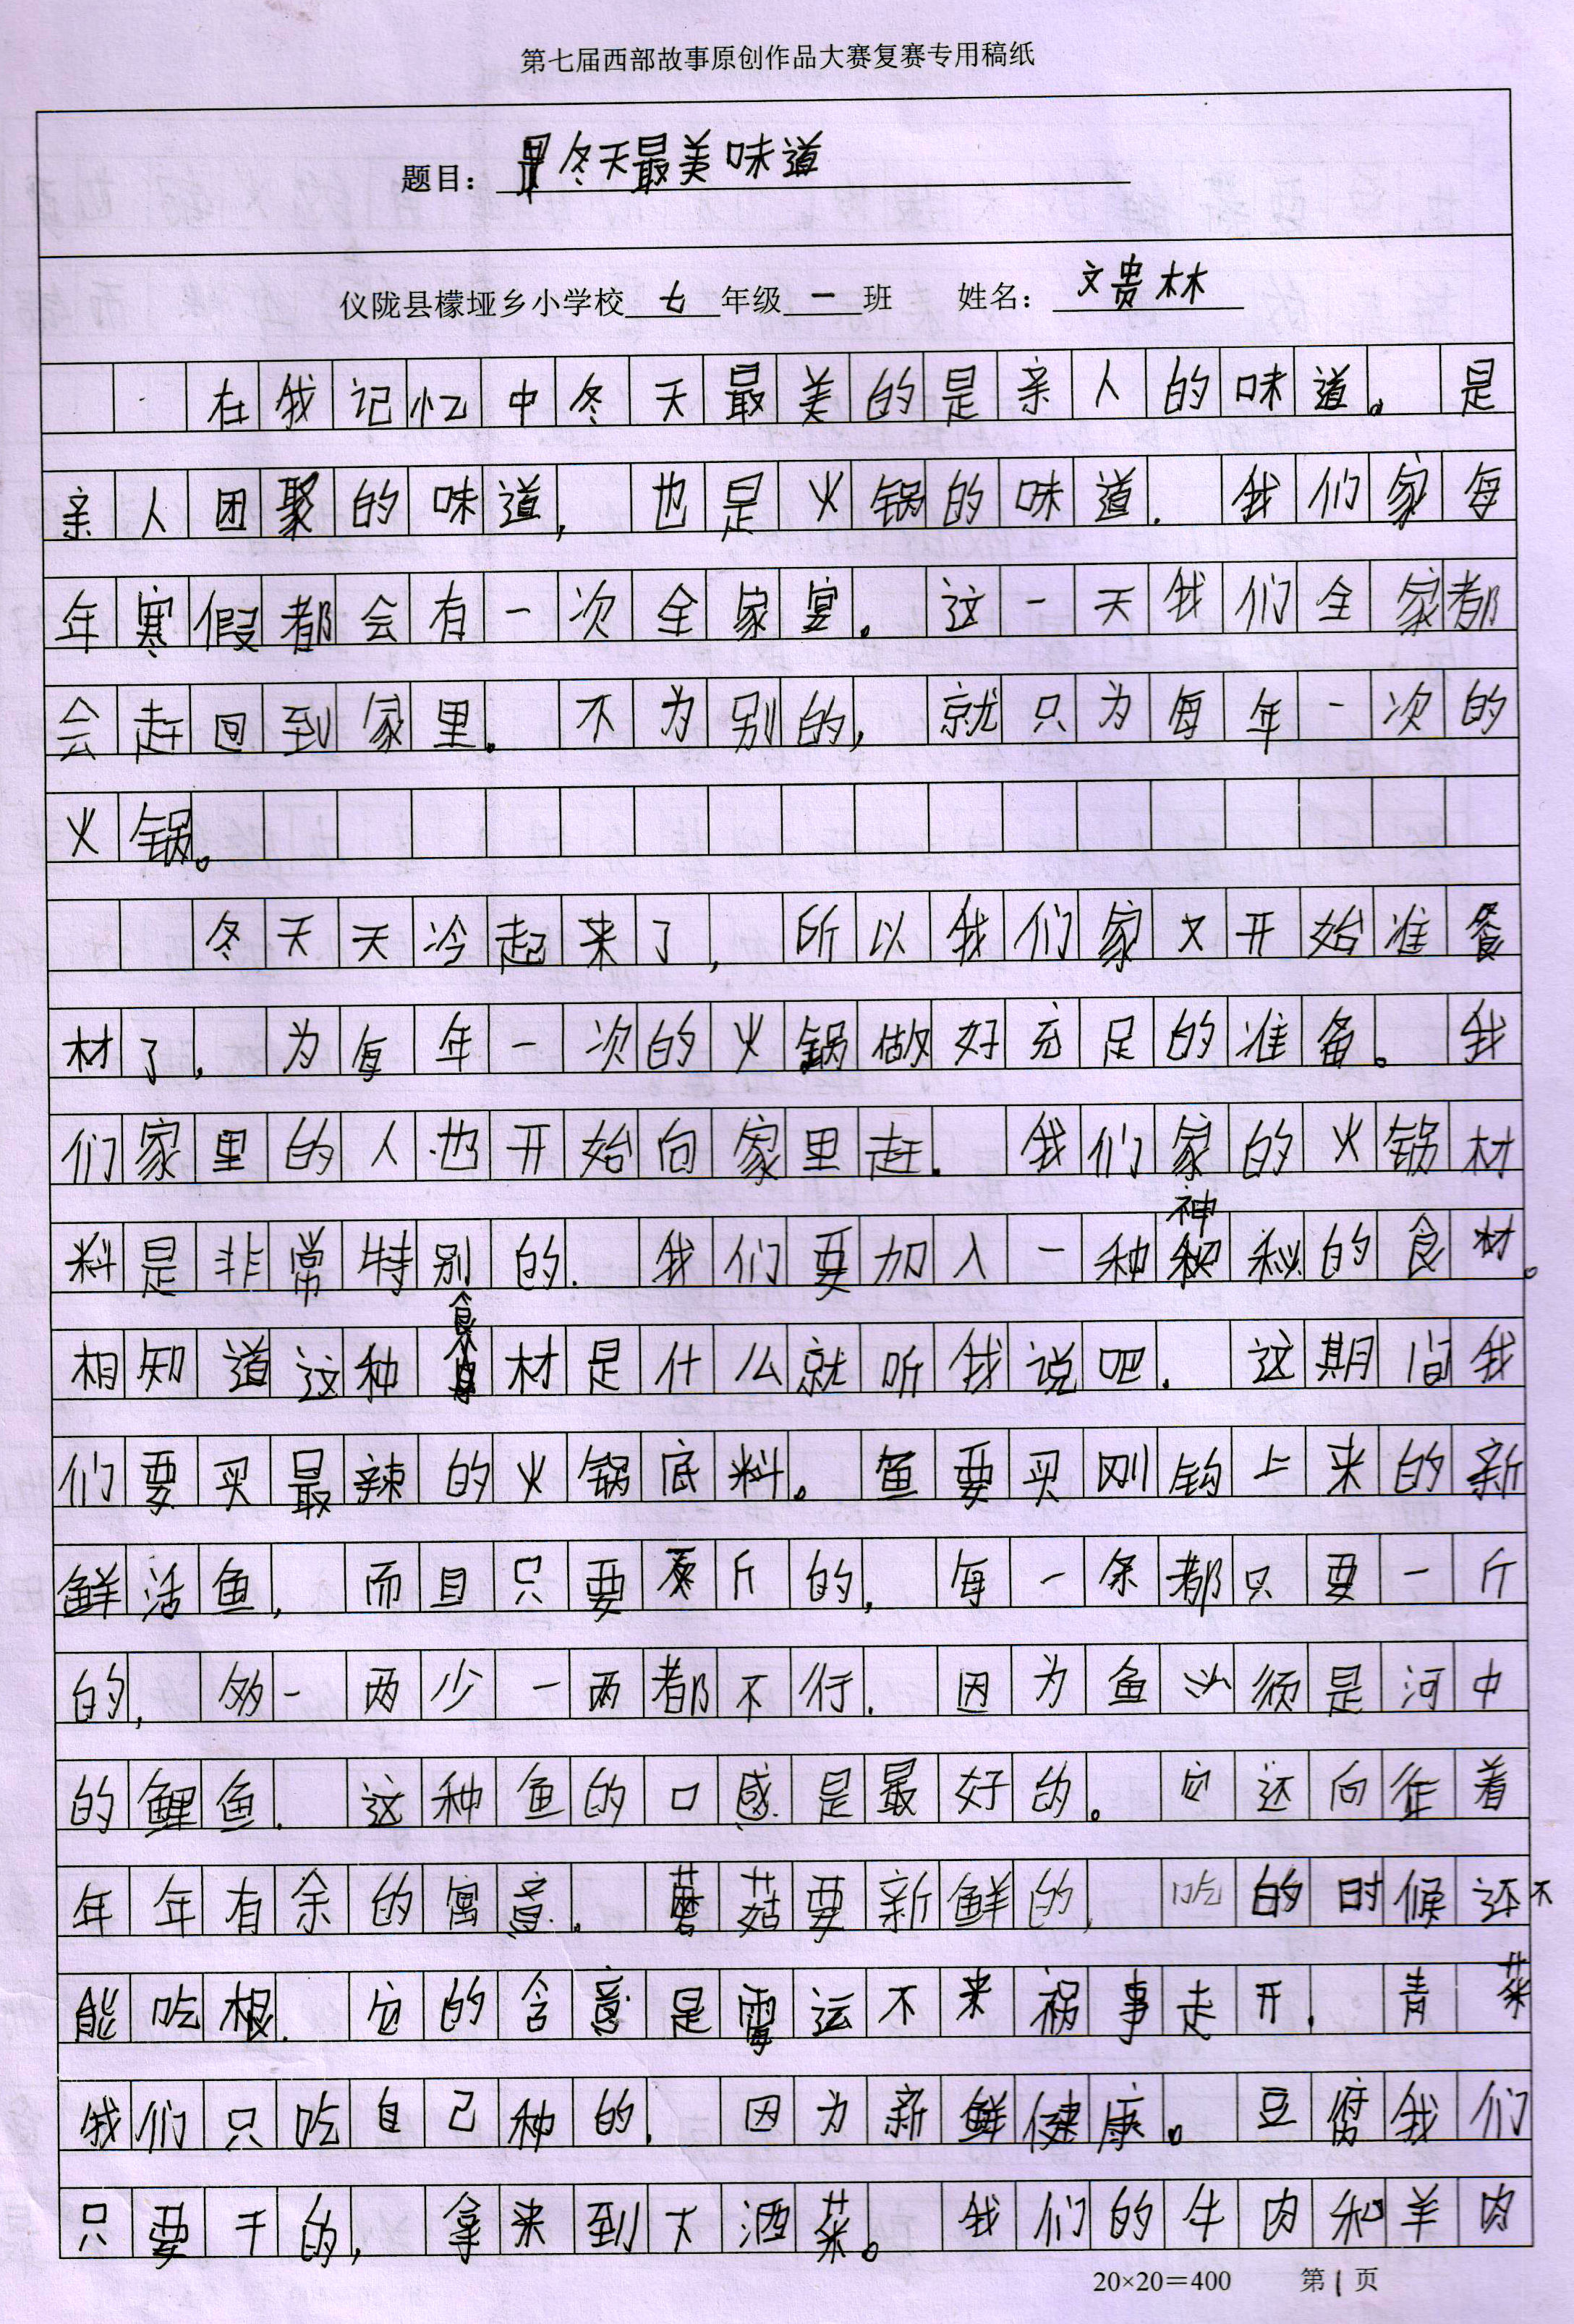 第七届西部故事原创作品大赛复赛专用稿纸
题目：冬天最美味道
仪陇县檬垭乡小学校七年级一班 姓名：文贵林
在我记忆中冬天最美的是亲人的味道。是
亲人团聚的味道，也是火锅的味道.我们家每
年寒假都会有一次全家宴。这一天我们全家都
会赶回到家里。不为别的，就只为每年一次的
火锅。
冬天天冷起来了，所以我们家又开始准餐
材了，为每年一次的火锅做好充足的准备。我
们家里的人也开始向家里赶.我们家的火锅材
料是非常特别的.我们要加入一种神秘的食材。
相知道这种食材是什么就听我说吧.这期间我
们要买最辣的火锅底料。鱼要买刚钩上来的新
鲜活鱼，而且只要斤的，每一条都只要一斤
的，多一两少一两都不行.因为鱼必须是河中
的鲤鱼.这种鱼的口感是最好的。它还向往着
年年有余的寓意.蘑菇要新鲜的，吃的时候还不
能吃根.它的含意是霉运不来祸事走开.青菜
我们只吃自己种的.因为新鲜健康。豆腐我们
只要干的，拿来到下酒菜。我们的牛肉和羊肉
20×20＝400 第1页